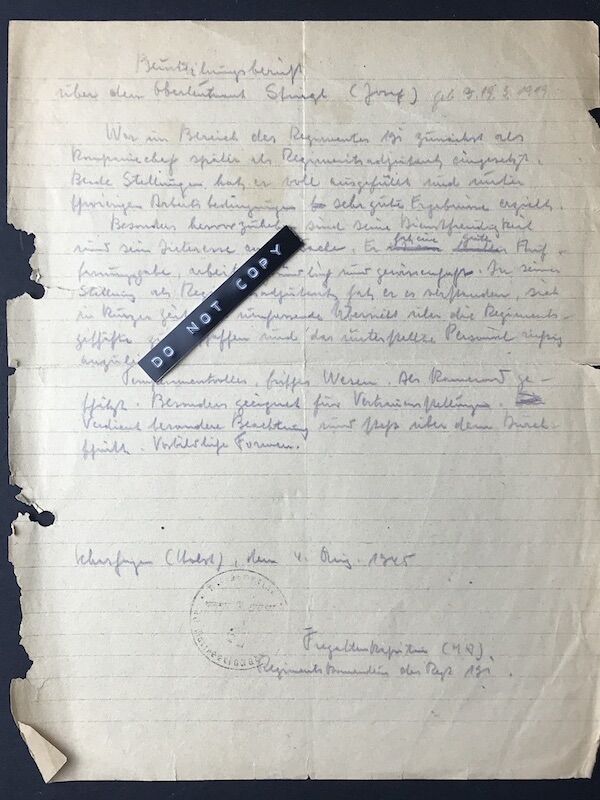 Beurteilungsbericht
über den Oberleutnant Stingl (Josef) geb 19.3.1919
War im Bereich des Regimentes 131 zunächst als
Kompaniechef später als Regimentsadjutant eingesetzt.
Beide Stellungen hat er voll ausgefüllt und unter
schwierigen Arbeitsbedingungen sehr gute Ergebnisse erzielt.
Besonders hervorzuheben sind seine Dienstfreudigkeit
und sein Interesse an Sache. Er hat eine gute Auf-
fassungsgabe, arbeitet und gewissenhaft. In seiner
Stellung als hat er es verstanden, sich
in kurzer Zeit umfassende Übersicht über die Regiments-
geschäfte und das unterstellte Personal richtig
DO NOT COPY
Temperamentvolles, frisches Wesen. Als Kamerad ge-
schätzt. Besonders geeignet für Vertrauensstellungen.
Verdient besondere Beachtung und steht über dem Durch-
schnitt. Vorbildliche Formen.
(Holst), den 4. Aug. 1945
Fregattenkapitän (MA).
Regimentskommandeur des Rgt 131.